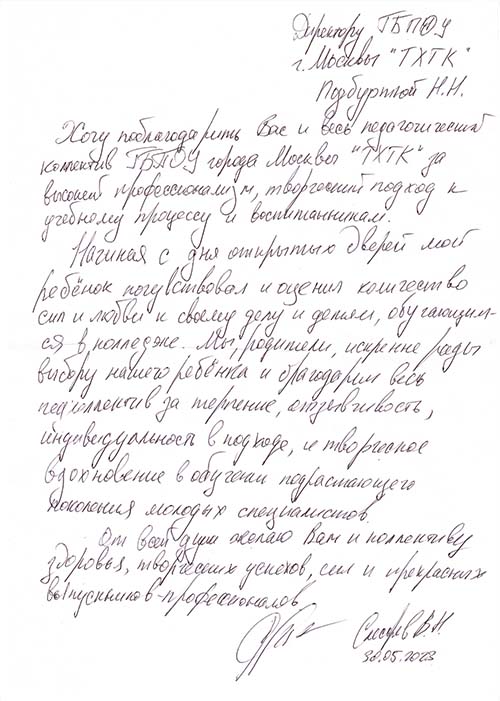 Директору ГБПОУ
г. Москвы "ТХТК"
Позбуртной Н.Н.
Хочу поблагодарить Вас и весь педагогический
коллектив ГБПОУ города Москвы "ТХТК" за
высокий профессионализм, творческий подход к
учебному процессу и воспитанникам.
Начиная с дня открытых дверей мой
ребёнок почувствовал и оценил количество
сил и любви к своему делу и детям, обучающим-
ся в колледже. Мы, родители, искренне рады
выбору нашего ребёнка и благодарим весь
педколлектив за терпение, отзывчивость,
индивидуальность в подходе, и творческое
вдохновение в обучении подрастающего
поколения молодых специалистов.
От всей души желаю Вам и коллективу
здоровья, творческих успехов, сил и прекрасных
выпускников-профессионалов
В.Н.
30.05.2023